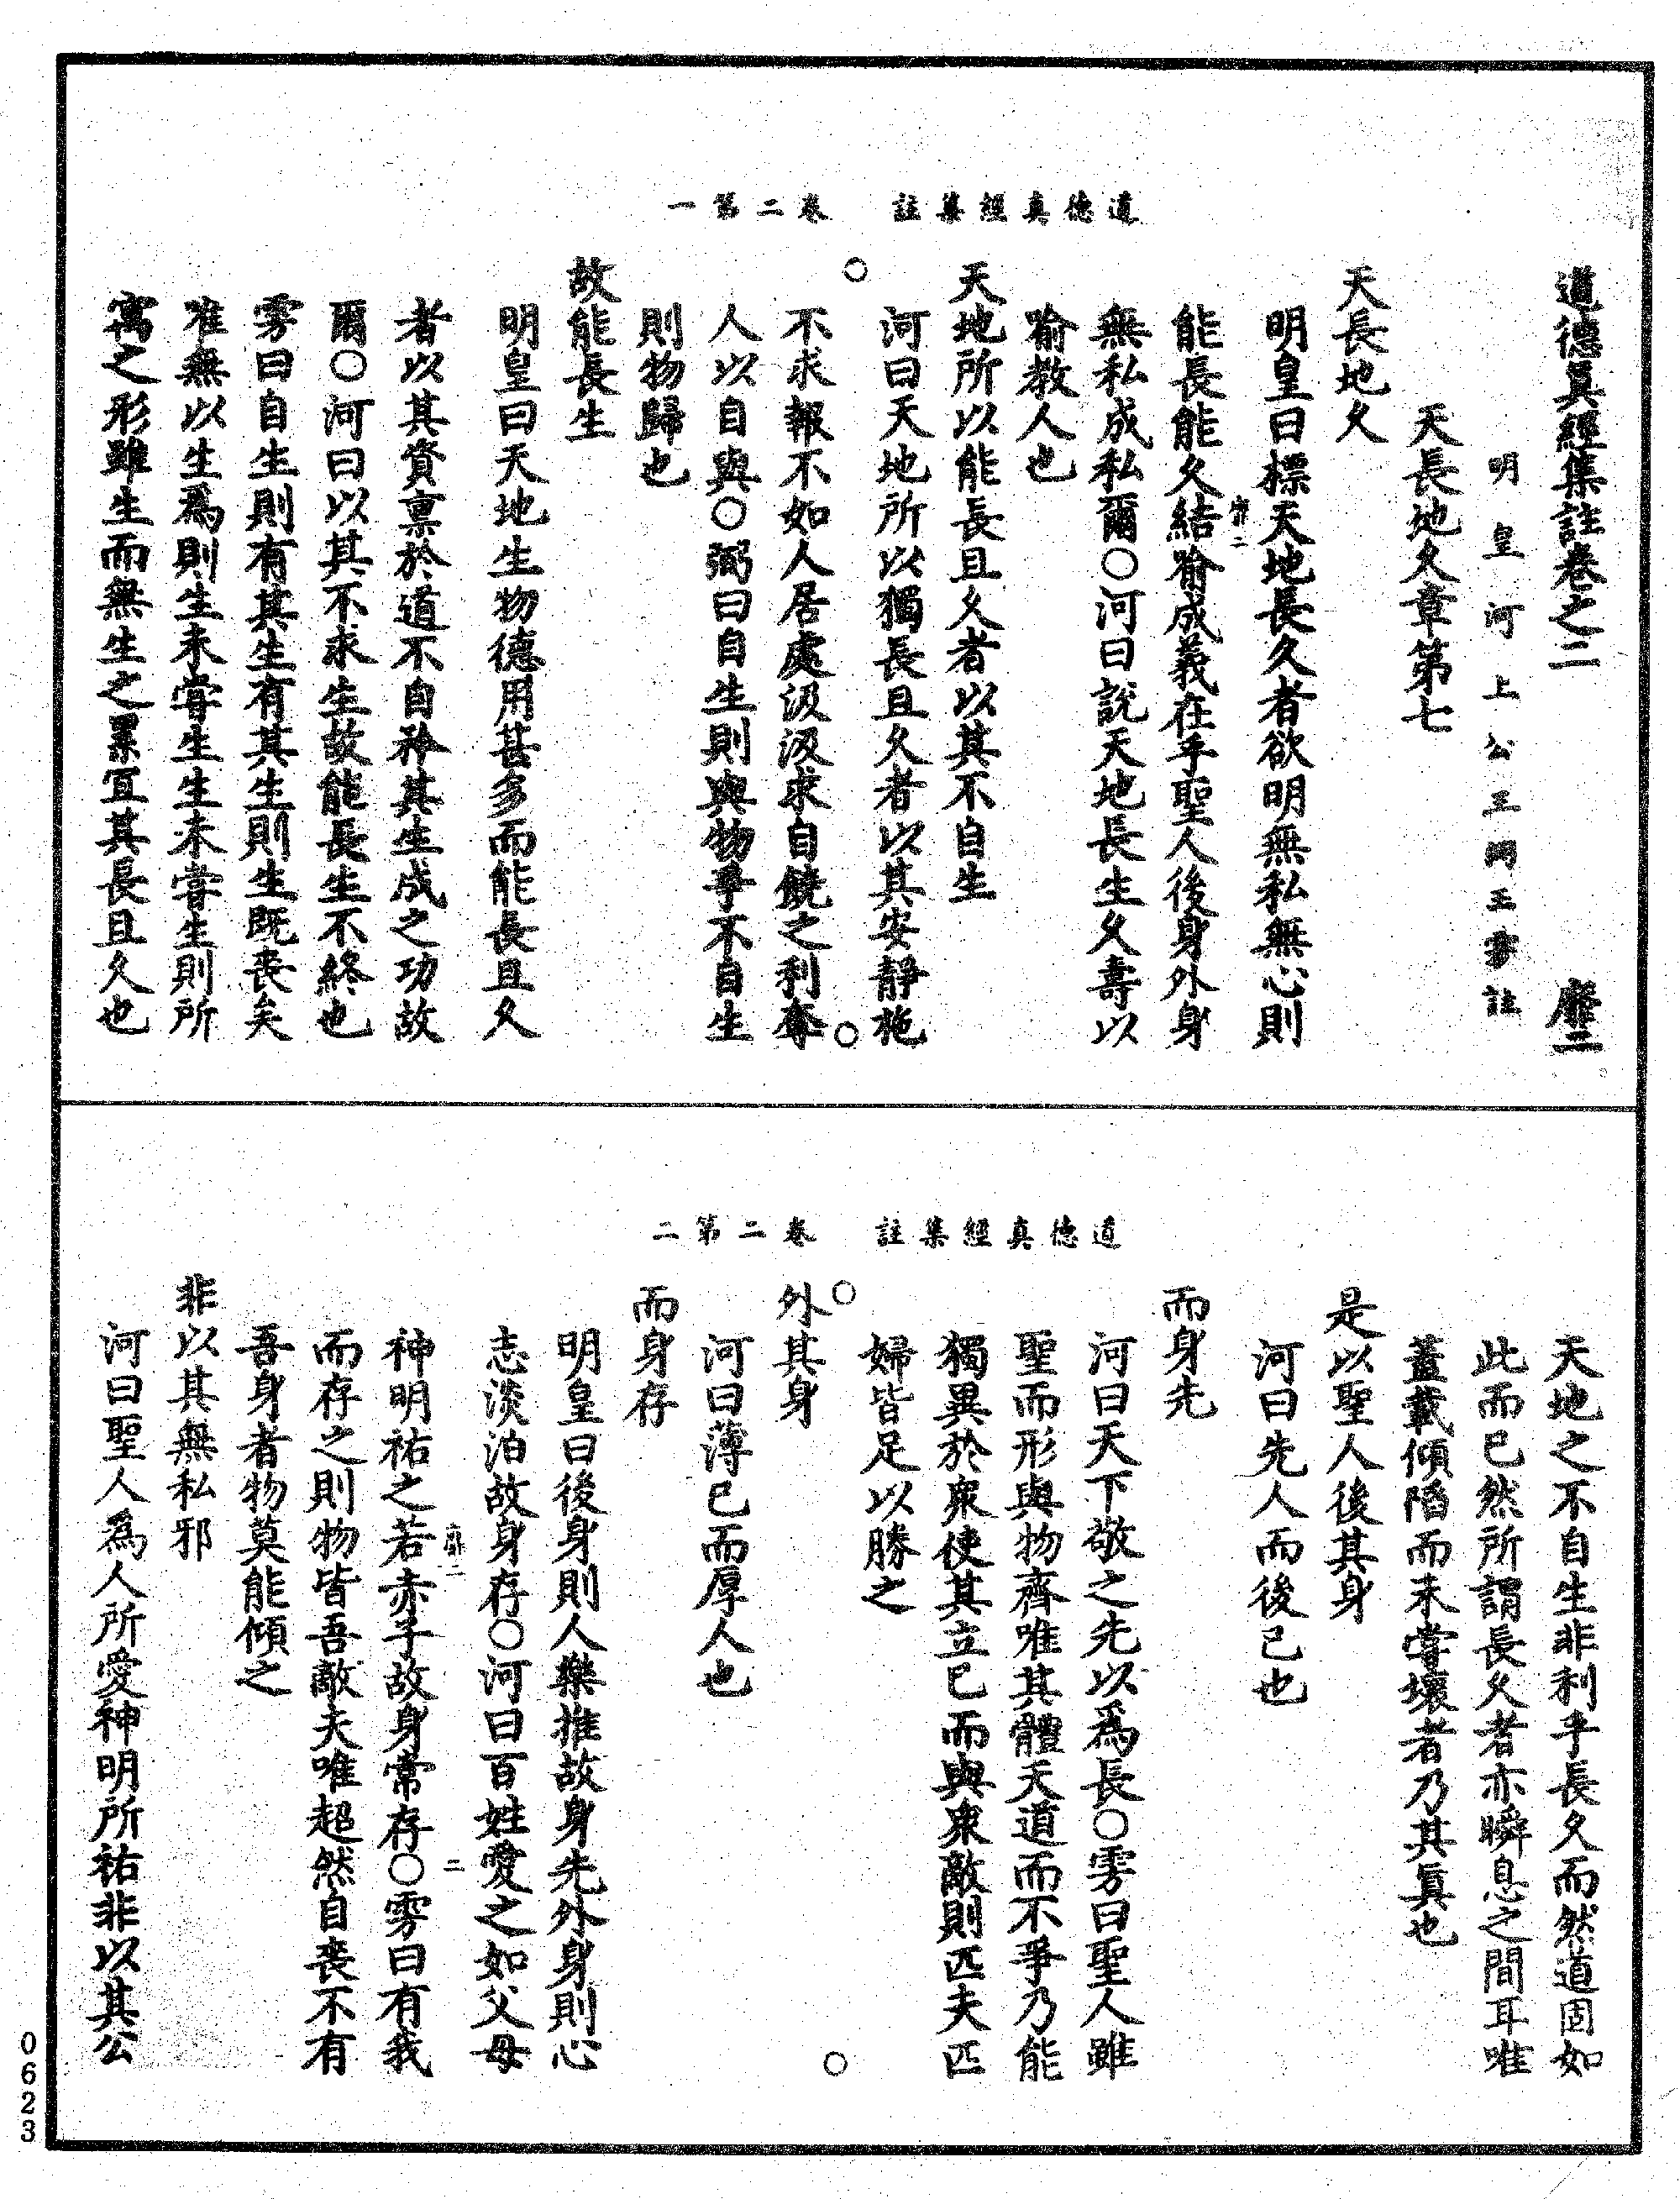 道德真經集註　卷二第一
道德眞經集註卷之二　靡二
明皇河上公王弼王雱註
天長地久章第七
天長地久
明皇曰標天地長久者欲明無私無心則
能長能久結喻成義在乎聖人後身外身
無私成私爾○河曰說天地長生久壽以
喻教人也
天地所以能長且久者以其不自生
河曰天地所以獨長且久者以其安靜施
不求報不如人居處汲汲求自饒之利奪
人以自與○弼曰自生則與物爭不自生
則物歸也
故能長生
明皇曰天地生物德用甚多而能長且久
者以其資禀於道不自矜其生成之功故
爾○河曰以其不求生故能長生不終也
雱曰自生則有其生有其生則生既喪矣
唯無以生爲則生未嘗生生未嘗生則所
寓之形雖生而無生之累宜其長且久也
道德真經集註　卷二第二
天地之不自生非利乎長久而然道固如
此而已然所謂長久者亦瞬息之間耳唯
蓋載傾陷而未嘗壞者乃其眞也
是以聖人後其身
河曰先人而後己也
而身先
河曰天下敬之先以爲長○雱曰聖人雖
聖而形與物齊唯其體天道而不爭乃能
獨異於衆使其立己而與衆敵則匹夫匹
婦皆足以勝之
外其身
河曰薄己而厚人也
而身存
明皇曰後身則人樂推故身先外身則心
志淡泊故身存○河曰百姓愛之如父母
神明祐之若赤子故身常存○雱曰有我
而存之則物皆吾敵夫唯超然自喪不有
吾身者物莫能傾之
非以其無私邪
河曰聖人爲人所愛神明所祐非以其公
0623